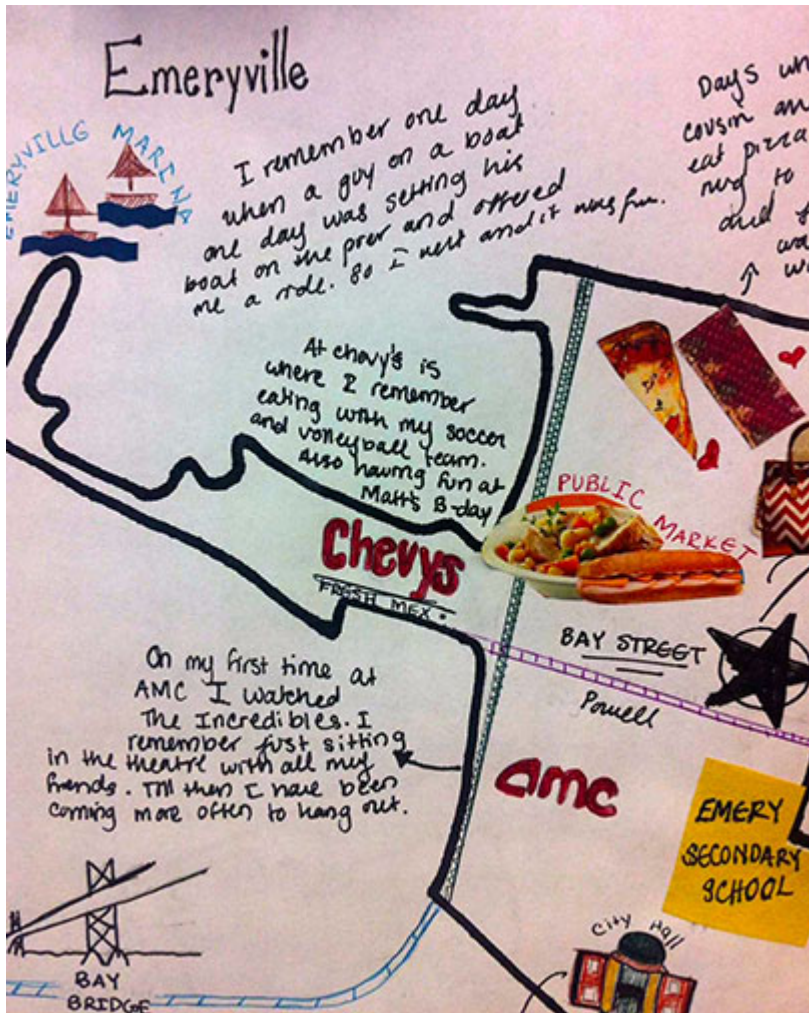 Emeryville
EMERYVILLE MARINA
I remember one day
when a guy on a boat
one day was setting his
boat on the pier and offered
me a ride. So I went and it was fun.
Days wh
cousin an
eat pizza
to
and
wa
At chevy's is
where I remember
eating with my soccer
and volleyball team.
Also having fun at
Matt's B-day
PUBLIC MARKET
Chevys
FRESH MEX.
BAY STREET
Powell
On my first time at
AMC I watched
The Incredibles. I
remember just sitting
in the theatre with all my
friends. Till then I have been
coming more often to hang out.
amc
EMERY
SECONDARY
SCHOOL
City Hall
BAY
BRIDGE